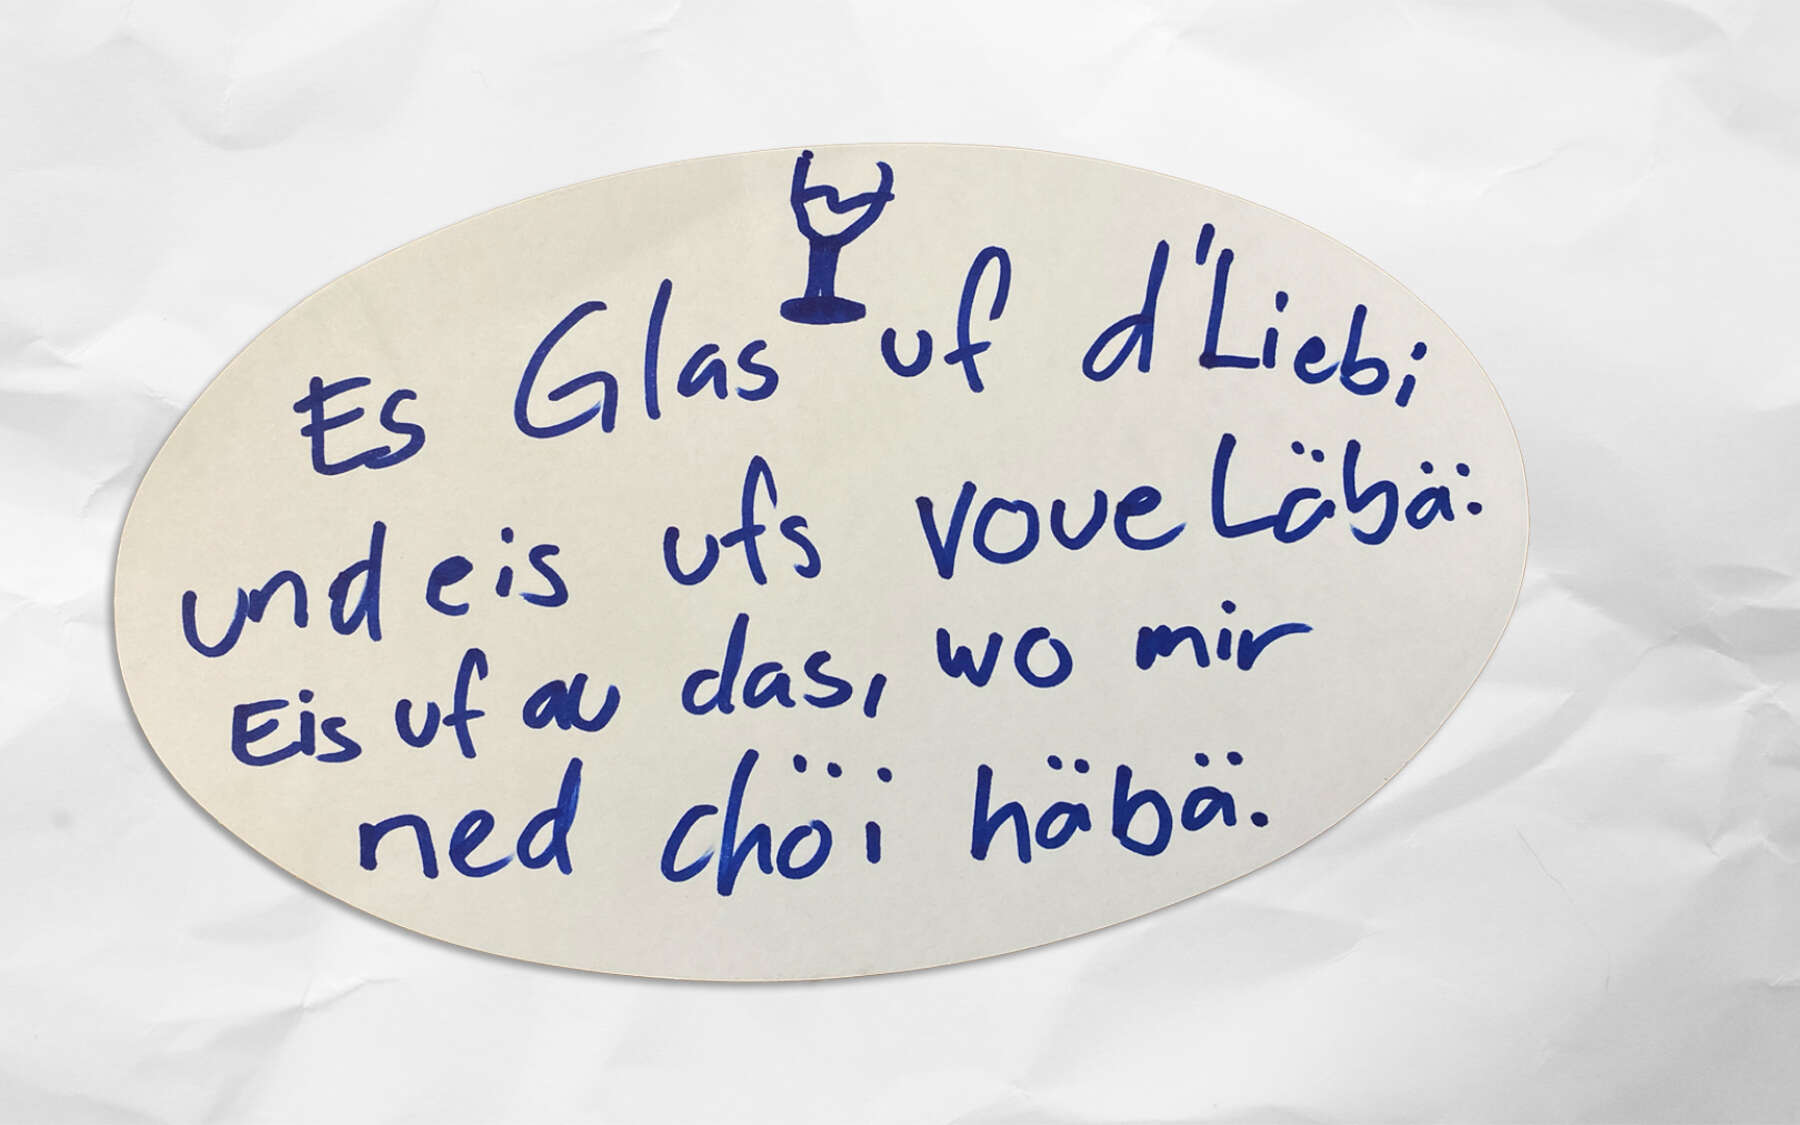 Es Glas uf d'Liebi
und eis ufs voue Läbä.
Eis uf au das, wo mir
ned chöi häbä.